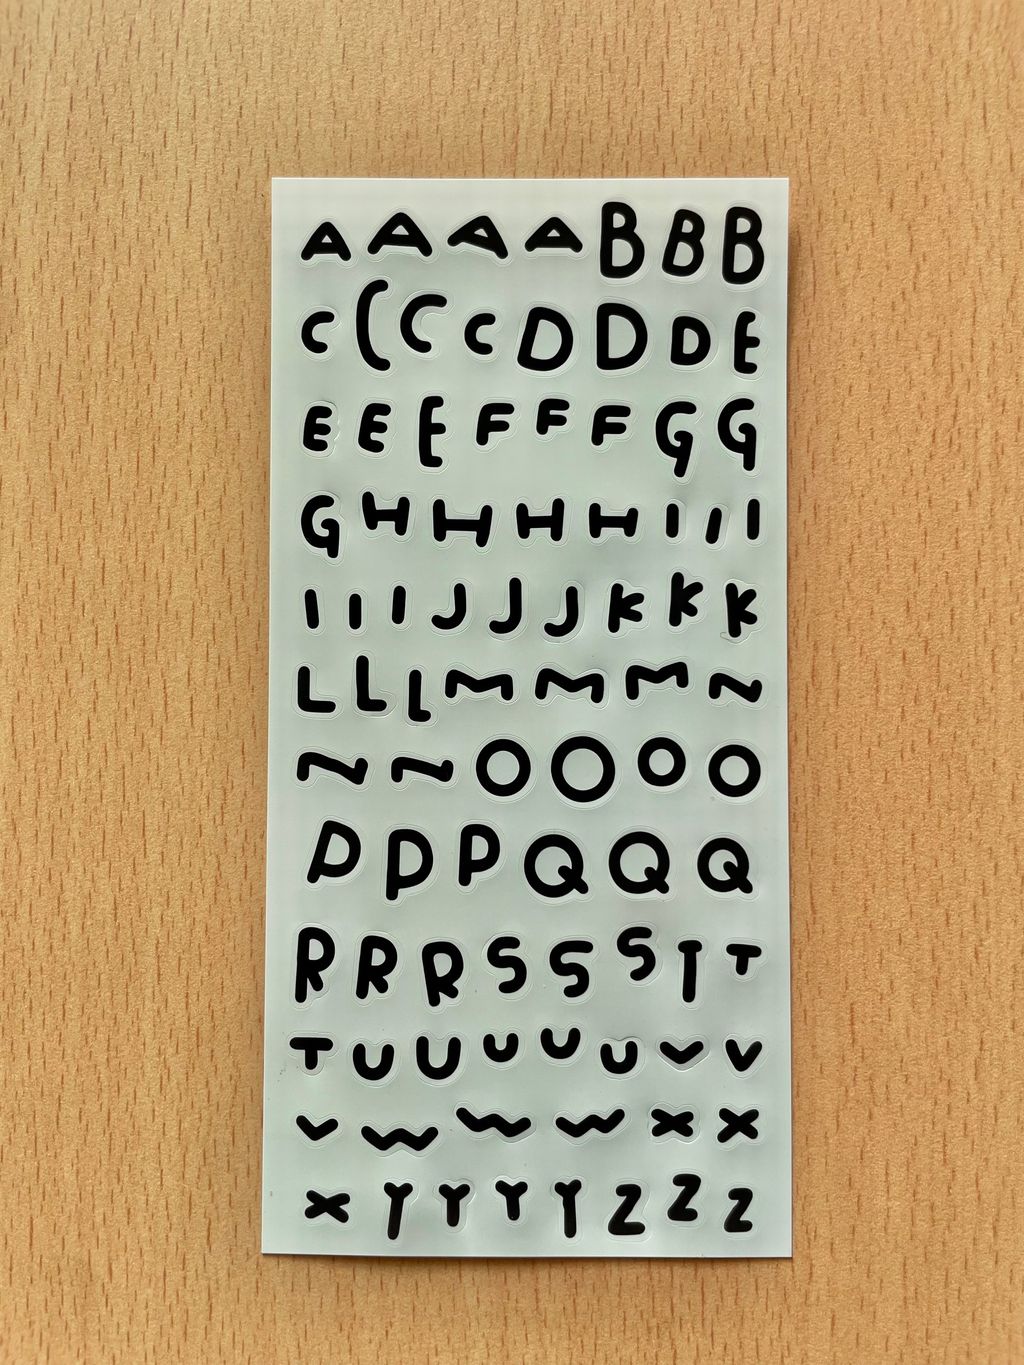 A A A A B B B
C C C C D D D E
E E E F F F G G
G H H H H I I I
I I I J J J K K K
L L L M M M N
N N O O O O
P P P Q Q Q
R R R S S S T T
T U U U U U V V
V W W W X X
X Y Y Y Y Z Z Z